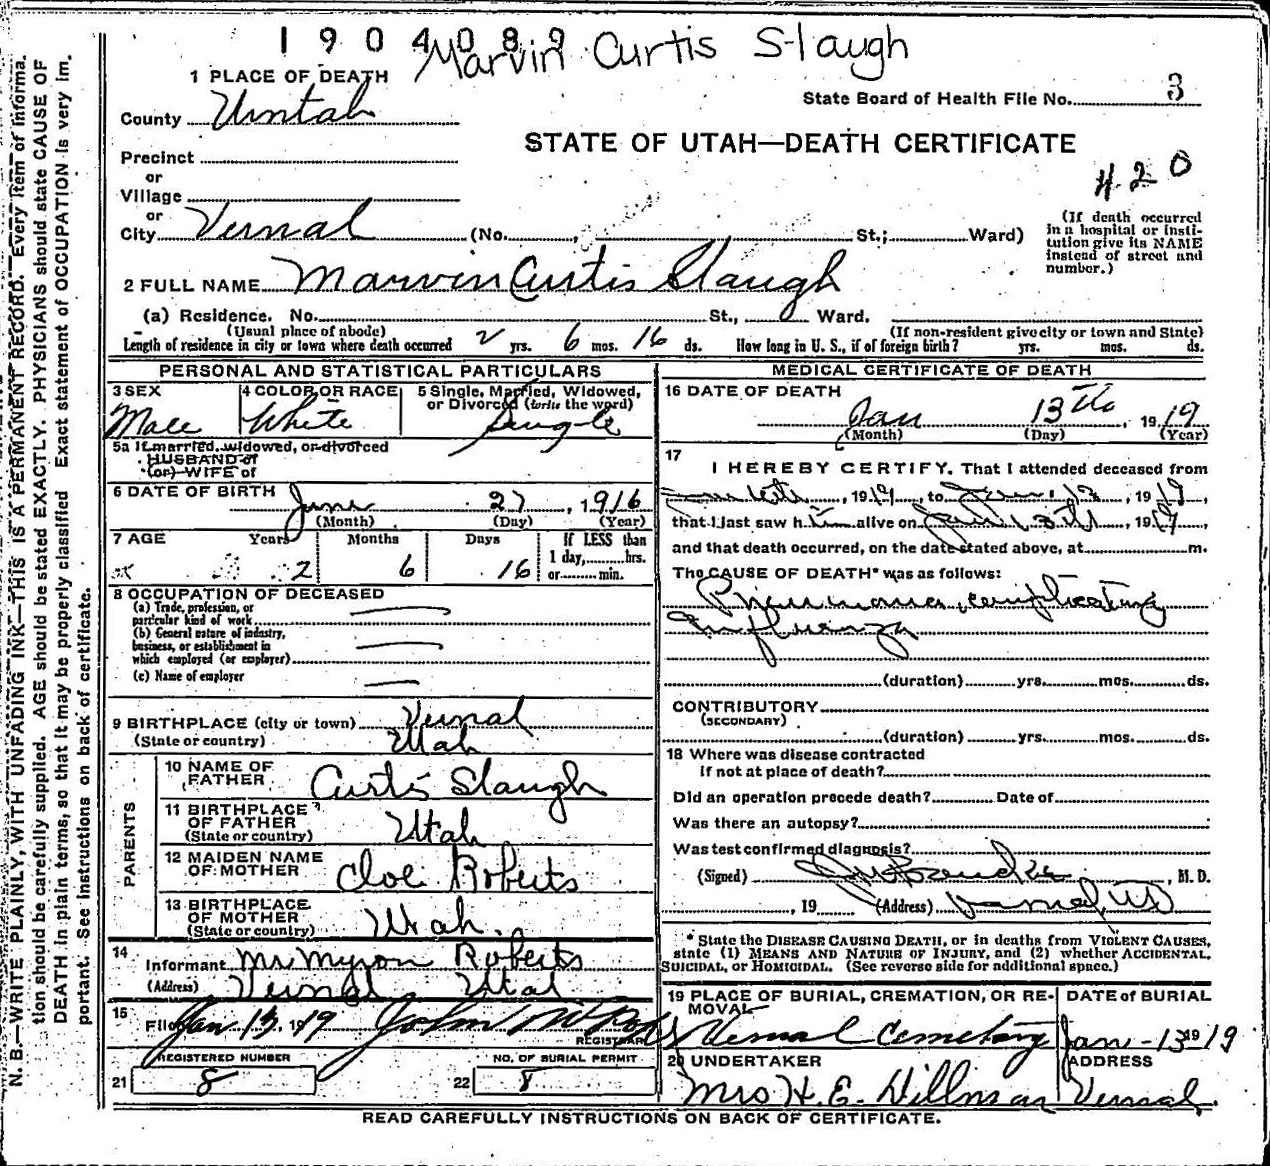 1904089 Marvin Curtis Slaugh
1 PLACE OF DEATH
State Board of Health File No. 3
County Uintah
STATE OF UTAH—DEATH CERTIFICATE
420
Precinct
or
Village
or
City Vernal (No. , St.; Ward)
(If death occurred in a hospital or institution give its NAME instead of street and number.)
2 FULL NAME Marvin Curtis Slaugh
(a) Residence. No. St., Ward.
(Usual place of abode) (If non-resident give city or town and State)
Length of residence in city or town where death occurred 2 yrs. 6 mos. 16 ds. How long in U. S., if of foreign birth? yrs. mos. ds.
PERSONAL AND STATISTICAL PARTICULARS
3 SEX 4 COLOR OR RACE 5 Single, Married, Widowed, or Divorced (write the word)
Male White Single
5a If married, widowed, or divorced
HUSBAND of
(or) WIFE of
6 DATE OF BIRTH June 27, 1916
(Month) (Day) (Year)
7 AGE Years Months Days If LESS than
1 day, hrs.
2 6 16 or min.
8 OCCUPATION OF DECEASED
(a) Trade, profession, or
particular kind of work
(b) General nature of industry,
business, or establishment in
which employed (or employer)
(c) Name of employer
9 BIRTHPLACE (city or town) Vernal
(State or country) Utah
PARENTS
10 NAME OF FATHER Curtis Slaugh
11 BIRTHPLACE OF FATHER
(State or country) Utah
12 MAIDEN NAME OF MOTHER Cloe Roberts
13 BIRTHPLACE OF MOTHER
(State or country) Utah.
14 Informant Mr Myron Roberts
(Address) Vernal Utah
15 Filed Jan 13, 1919
REGISTRAR
REGISTERED NUMBER NO. OF BURIAL PERMIT
21 8 22 8
MEDICAL CERTIFICATE OF DEATH
16 DATE OF DEATH
Jan 13th, 1919
(Month) (Day) (Year)
17 I HEREBY CERTIFY. That I attended deceased from
, 1919, to Jan 13, 1919,
that I last saw him alive on Jan 13th, 1919,
and that death occurred, on the date stated above, at m.
The CAUSE OF DEATH* was as follows:
Pneumonia complicating
Influenza
(duration) yrs. mos. ds.
CONTRIBUTORY
(SECONDARY)
(duration) yrs. mos. ds.
18 Where was disease contracted
if not at place of death?
Did an operation precede death? Date of
Was there an autopsy?
Was test confirmed diagnosis?
(Signed) , M. D.
, 19 (Address) Vernal, Ut
* State the DISEASE CAUSING DEATH, or in deaths from VIOLENT CAUSES,
state (1) MEANS AND NATURE OF INJURY, and (2) whether ACCIDENTAL,
SUICIDAL, or HOMICIDAL. (See reverse side for additional space.)
19 PLACE OF BURIAL, CREMATION, OR REMOVAL DATE of BURIAL
Vernal Cemetery Jan-13 1919
20 UNDERTAKER ADDRESS
Mrs H. E. Dillman Vernal.
READ CAREFULLY INSTRUCTIONS ON BACK OF CERTIFICATE.
N. B.—WRITE PLAINLY, WITH UNFADING INK—THIS IS A PERMANENT RECORD. Every item of informa-
tion should be carefully supplied. AGE should be stated EXACTLY. PHYSICIANS should state CAUSE OF
DEATH in plain terms, so that it may be properly classified. Exact statement of OCCUPATION is very im-
portant. See instructions on back of certificate.